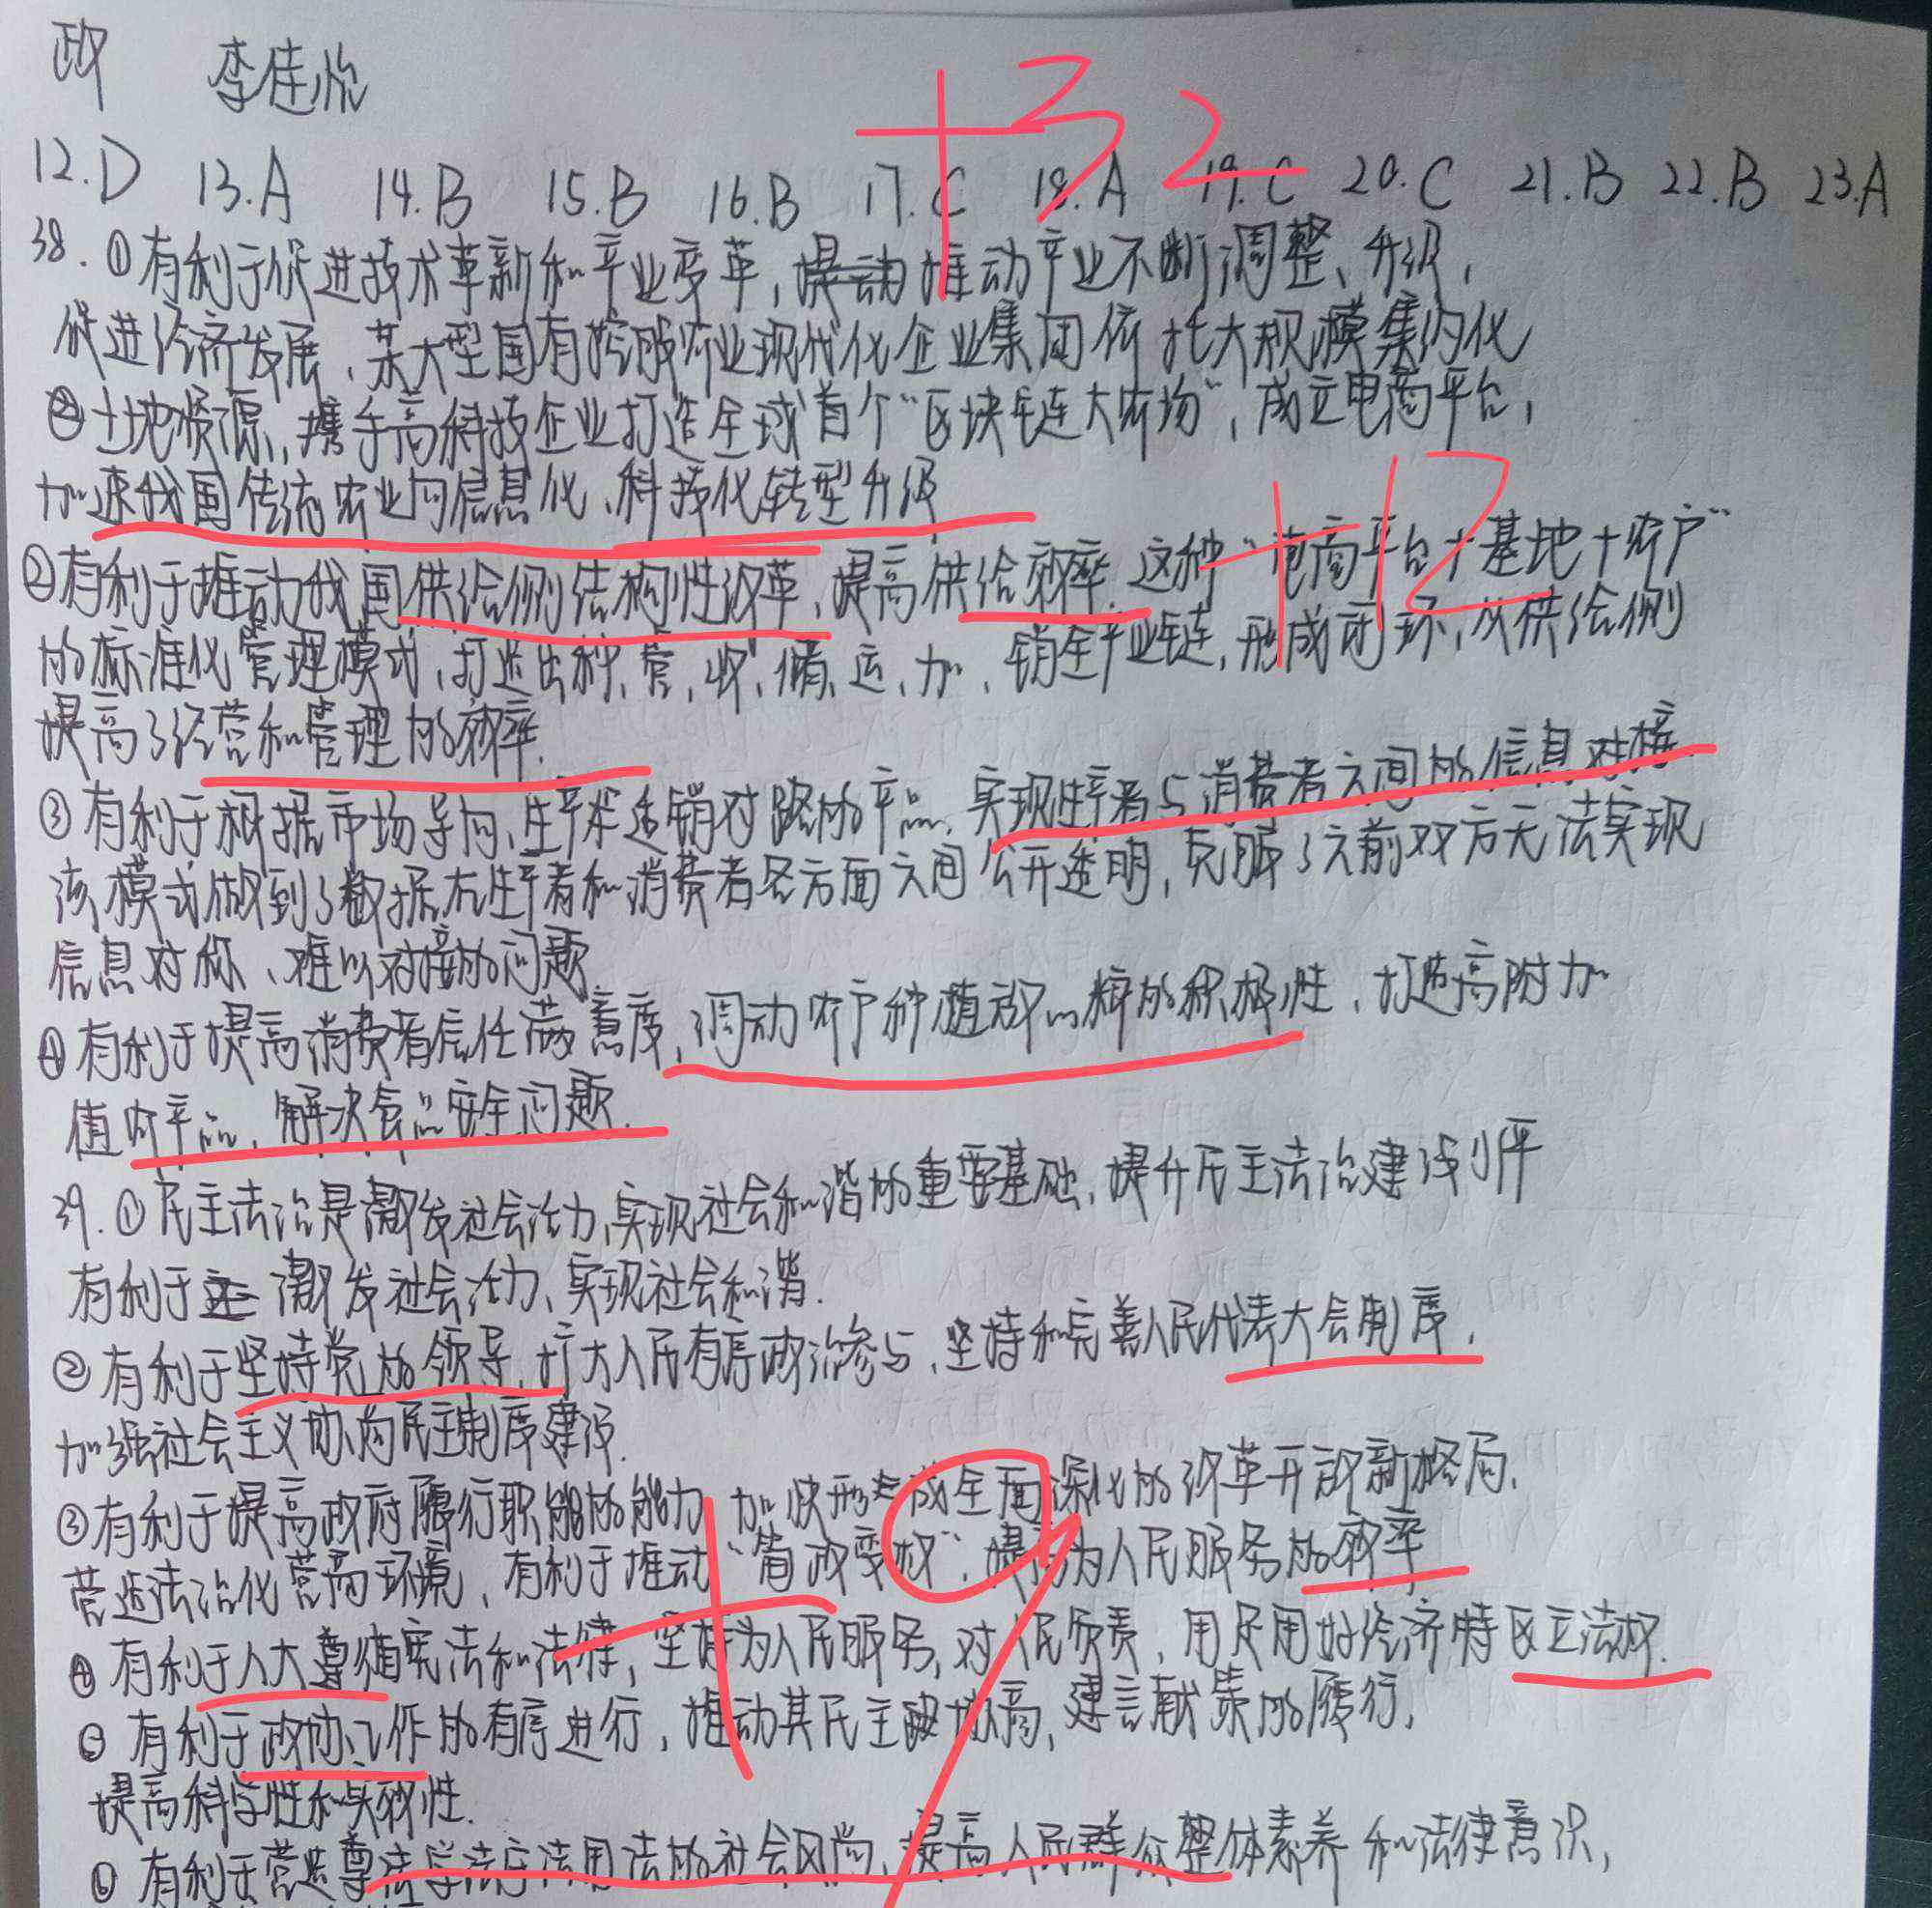 政 李佳怡
+32
12.D 13.A 14.B 15.B 16.B 17.C 18.A 19.C 20.C 21.B 22.B 23.A
38.①有利于促进技术革新和产业变革,推动产业不断调整、升级,
促进经济发展、某大型国有控股农业现代化企业集团依托大规模集约化
土地资源,携手高科技企业打造全球首个“区块链大农场”,成立电商平台,
加速我国传统农业向信息化、科技化转型升级
+12
②有利于推动我国供给侧结构性改革,提高供给效率.这种“电商平台+基地+农户”
的标准化管理模式,打造出种、管、收、储、运、加、销全产业链,形成闭环,从供给侧
提高了经营和管理的效率.
③有利于根据市场导向,生产适销对路的产品,实现生产者与消费者之间的信息对接
该模式做到了数据在生产者和消费者各方面之间公开透明,克服了之前双方无法实现
信息对称、难以对接的问题
④有利于提高消费者信任满意度,调动农户种植的积极性,打造高附加
值农产品,解决食品安全问题.
39.①民主法治是激发社会活力、实现社会和谐的重要基础,提升民主法治建设水平
有利于激发社会活力、实现社会和谐.
②有利于坚持党的领导,扩大人民有序政治参与,坚持和完善人民代表大会制度,
加强社会主义协商民主制度建设.
+9
③有利于提高政府履行职能的能力,加快形成全面深化的改革开放新格局,
营造法治化营商环境,有利于推动“简政变权”,提高为人民服务的效率
④有利于人大遵循宪法和法律,坚持为人民服务,对人民负责,用足用好经济特区立法权.
⑤有利于政协工作的有序进行,推动其民主协商,建言献策的履行,
提高科学性和实效性.
⑥有利于营造尊法学法守法用法的社会风尚,提高人民群众整体素养和法律意识,